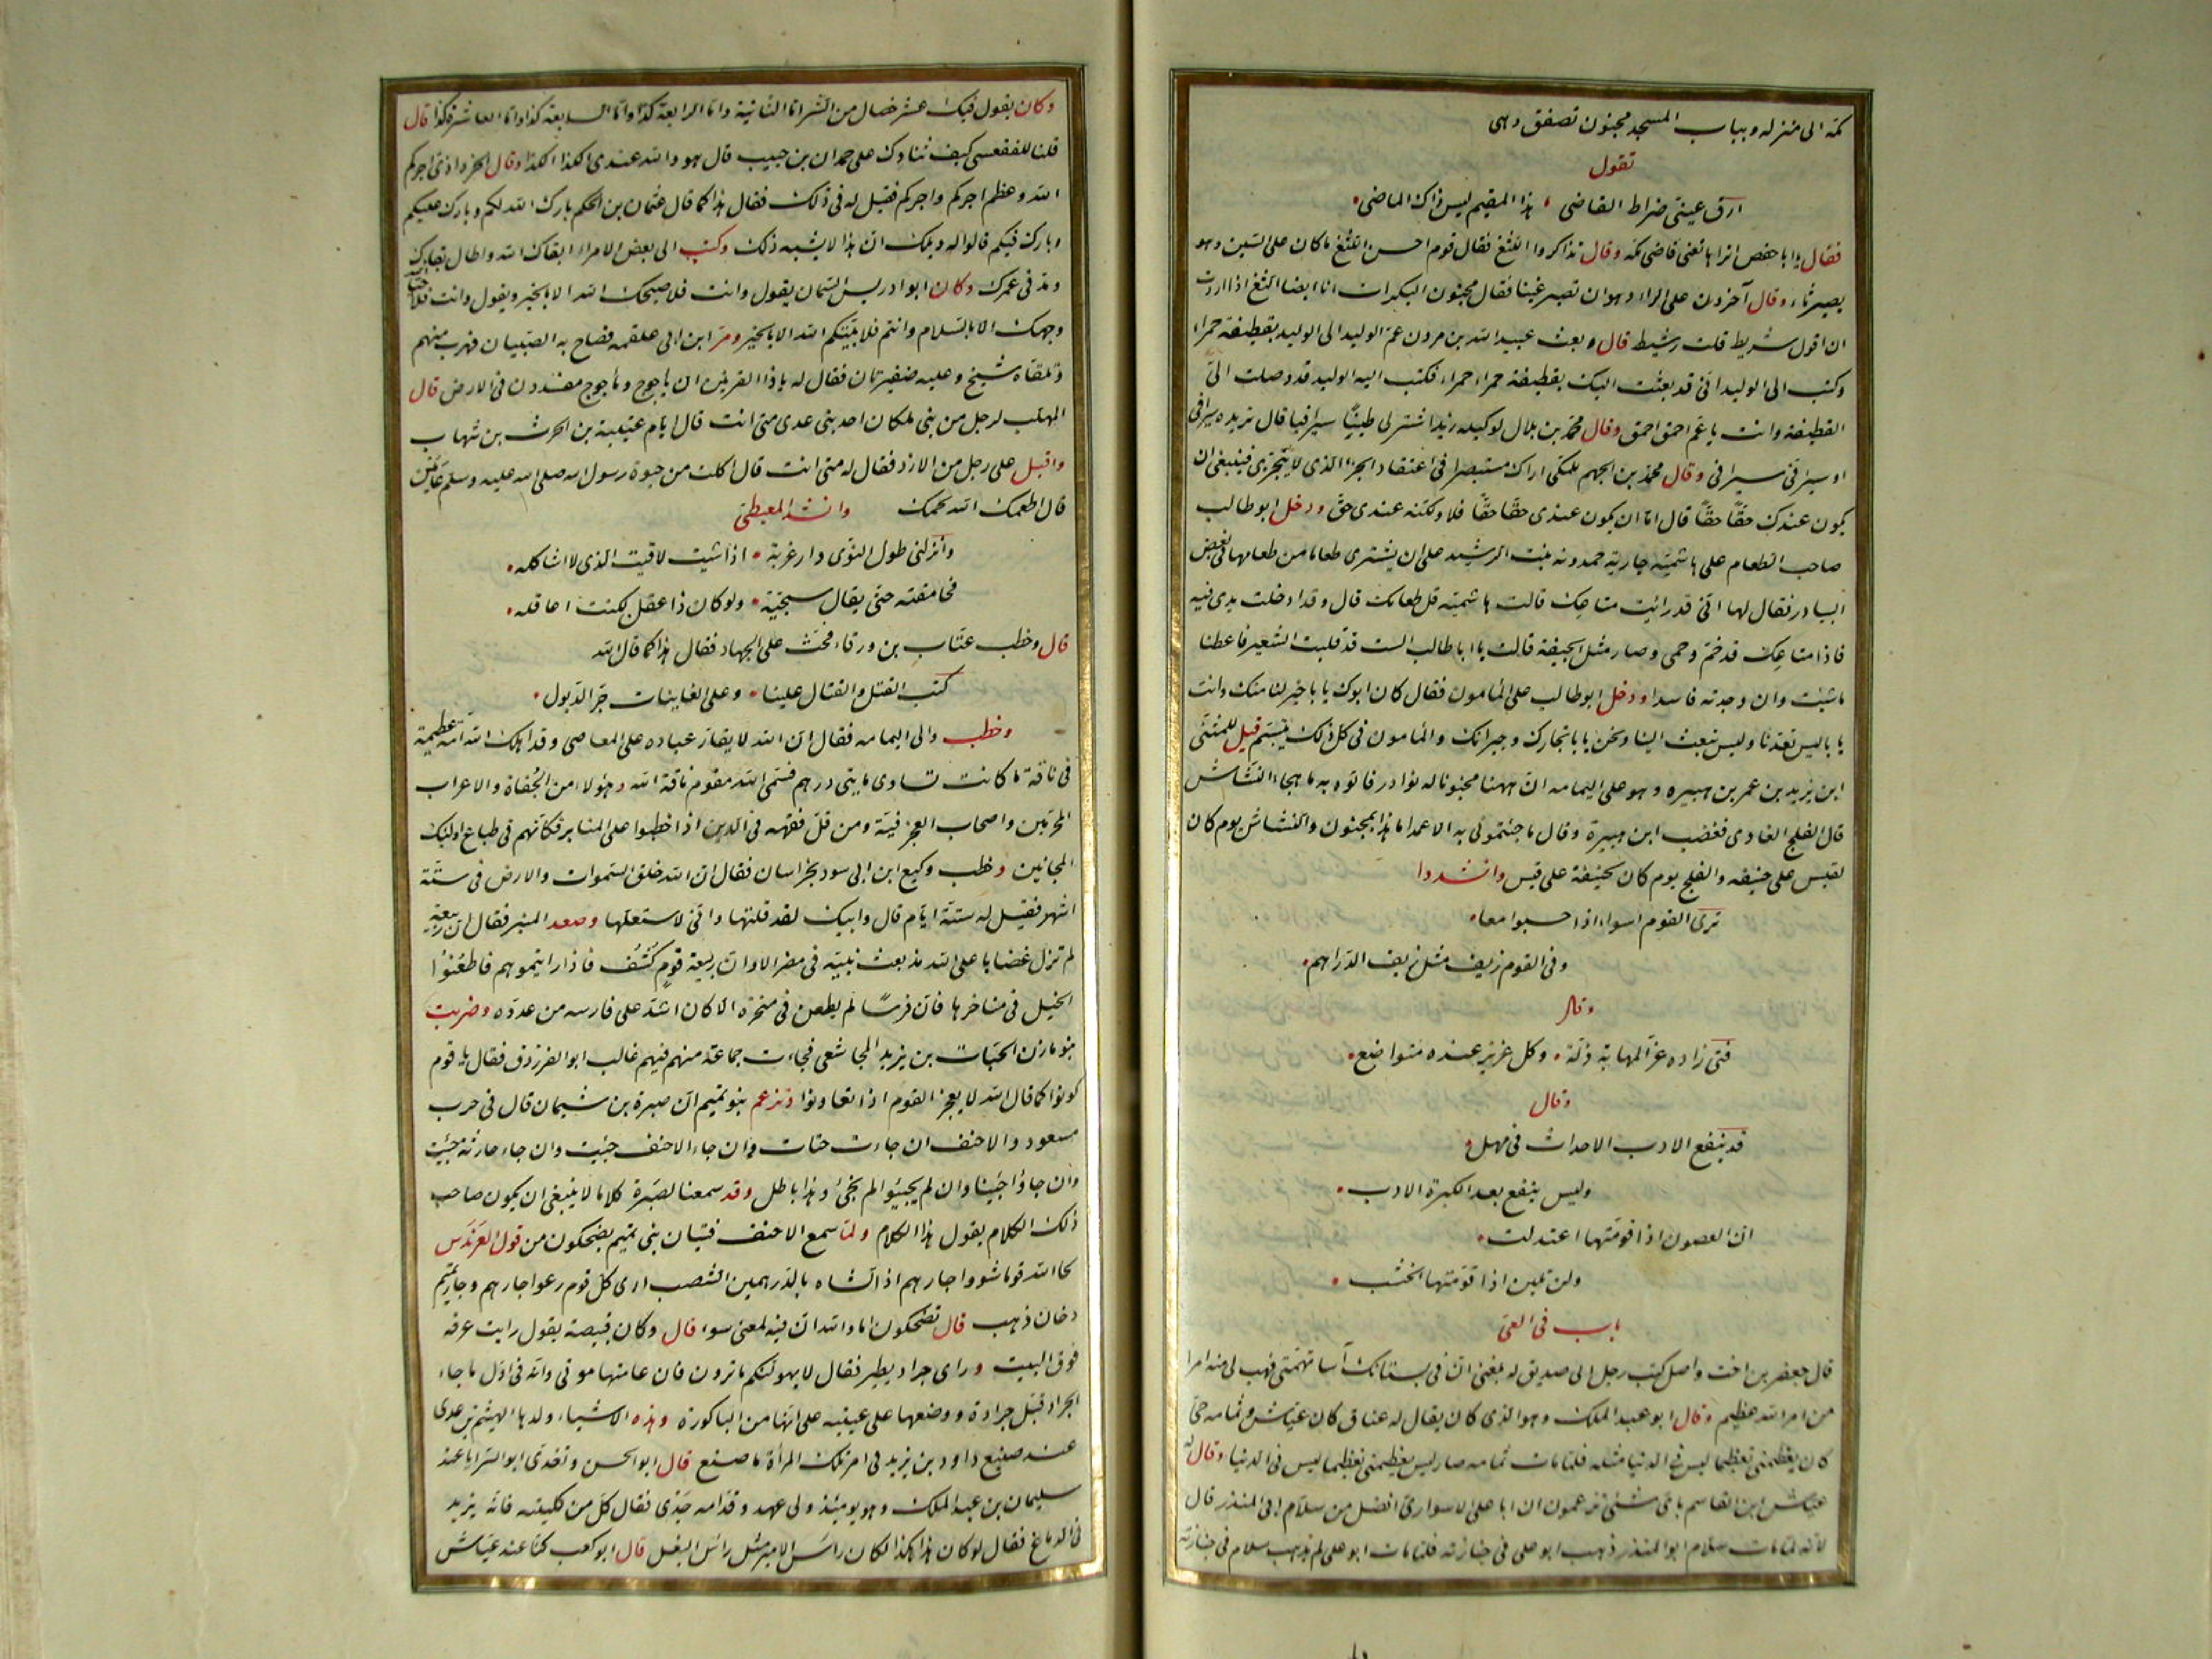 مكة الى منزله وبباب المسجد مجنون تصفق وهى
تقول
ارق عينىّ ضراط القاضى هذا المقيم ليس ذاك الماضى
فقال يا ابا حفص اتراها تعنى قاضى مكه وقال تذاكروا اللثغ فقال قوم احسن اللثغ ما كان على السين وهو
يصير ثاء وقال آخرون على الراء وهو ان تصير غينا فقال مجنون البكرات انا ايضا الثغ اذا اردت
ان اقول شريط قلت رشيط قال وبعث عبيد الله بن مرون عم الوليد الى الوليد بقطيفة حمراء
وكتب الى الوليد انى قد بعثت اليك بقطيفة حمراء حمراء فكتب اليه الوليد قد وصلت الىّ
القطيفة وانت يا عم احمق احمق وقال محمد بن بلال لوكيله زيد اشتر لى طيبًا سيرافيا قال تريده سيرافى
او سيرافى سيرافى وقال محمد بن الجهم للمكى اراك مستبصرا فى اعتقاد الجزء الذى لا يتجزى فينبغى ان
يكون عندك حقًا حقًا قال اما ان يكون عندى حقًا حقًا فلا ولكنه عندى حق ودخل ابو طالب
صاحب الطعام على هاشمية جارية حمدونه بنت الرشيد على ان يشترى طعاما من طعامها فى بعض
البيادر فقال لها انى قد رايت متاعك قالت هاشميه قل طعامك قال وقد ادخلت يدى فيه
فاذا متاعك قد خم وحمى وصار مثل الجيفة قالت يا ابا طالب الست قد قلبت الشعير فاعطنا
ما شئت وان وجدته فاسدا ودخل ابو طالب على المأمون فقال كان ابوك يا با خير لنا منك وانت
يا با ليس تعدنا وليس تبعث الينا ونحن يا با تجارك وجيرانك والمأمون فى كل ذلك يتبسّم قيل للمثنى
ابن يزيد بن عمر بن هبيره وهو على اليمامه ان ههنا مجنونا له نوادر فاتوه به ما هجاء النشاش
قال الفلج العادى فغضب ابن هبيرة وقال ما جئتمونى به الا عمدا ما هذا بمجنون والنشاش يوم كان
لقيس على حنيفه والفلج يوم كان لحنيفة على قيس وانشدوا
ترى القوم اسواء اذا حسبوا معا
وفى القوم زيف مثل زيف الدراهم
وقال
فتى زاده عزّ المهابة ذلة وكل عزيز عنده متواضع
وقال
قد ينفع الادب الاحداث فى مهل
وليس ينفع بعد الكبرة الادب
ان الغصون اذا قومتها اعتدلت
ولن تلين اذا قومتها الخشب
باب فى العىّ
قال جعفر بن اخت واصل كتب رجل الى صديق له بلغنى ان فى بستانك آسا تهمّنى فهب لى منه امرا
من امر الله عظيم وقال ابو عبد الملك وهو الذى كان يقال له عناق كان عياش وثمامه حى
كان يعظمنى تعظيما ليس فى الدنيا مثله فلما مات ثمامه صار ليس يعظمنى تعظيما ليس فى الدنيا وقال له
عياش ابن القاسم باى شىء تزعمون ان ابا على الاسوارى افضل من سلام ابى المنذر قال
لانه لما مات سلام ابو المنذر ذهب ابو على فى جنازته فلما مات ابو على لم يذهب سلام فى جنازته
وكان يقول فيك عشر خصال من الشر اما الثانية واما الرابعة كذا واما السابعة كذا واما العاشر فكذا قال
قلنا للفقعسى كيف ثناوك على حمدان بن حبيب قال هو والله عندى الكذا الكذا وقال اجركم
الله وعظم اجركم واجركم فقيل له فى ذلك فقال هذا كما قال عثمان بن الحكم بارك الله لكم وبارك عليكم
وبارك فيكم قالوا له ويلك ان هذا لا يشبه ذلك وكتب الى بعض الامراء ابقاك الله واطال بقاءك
ومد فى عمرك وكان ابو ادريس السمان يقول وانت فلا صبحك الله الا بالخير ويقول وانت فلا حيا الله
وجهك الا بالسلام وانتم فلا بيتكم الله الا بالخير ومر ابن ابى علقمه فصاح به الصبيان فهرب منهم
وتلقاه شيخ وعليه ضفيرتان فقال له يا ذا القرنين ان ياجوج وماجوج مفسدون فى الارض قال
المهلب لرجل من بنى ملكان احد بنى عدى متى انت قال ايام عتيبة بن الحرث بن شهاب
واقبل على رجل من الازد فقال له متى انت قال اكلت من حيوة رسول الله صلى الله عليه وسلم عامين
قال اطعمك الله لحمك وانشد المعيطى
وانزلنى طول النوى دار غربة اذا شيت لاقيت الذى لا اشاكله
فحامقته حتى يقال سجية ولو كان ذا عقل لكنت اعاقله
قال وخطب عتاب بن ورقاء فحث على الجهاد فقال هذا كما قال الله
كتب القتل والقتال علينا وعلى الغانيات جر الذيول
وخطب والى اليمامه فقال ان الله لا يقار عباده على المعاصى وقد اهلك الله امة عظيمة
فى ناقة ما كانت تساوى مايتى درهم فسمى مقوم ناقة الله وهؤلاء من الجفاة والاعراب
المحرّمين واصحاب العجرفية ومن قل فقهه فى الدين اذا خطبوا على المنابر فكانهم فى طباع اوليك
المجانين وخطب وكيع ابن ابى سود بخراسان فقال ان الله خلق السموات والارض فى ستة
اشهر فقيل له ستة ايام قال وابيك لقد قلتها وانى لاستقلها وصعد المنبر فقال ان ربيعة
لم تزل غضابا على الله مذ بعث نبيه فى مضر الا وان ربيعة قوم كشف فاذا رايتموهم فاطعنوا
الخيل فى مناخرها فان فرسًا لم يطعن فى منخره الا كان اشد على فارسه من عدوه وضربت
بنو مازن الحتات بن يزيد المجاشعى فجاءت جماعة منهم فيهم غالب ابو الفرزدق فقال يا قوم
كونوا كما قال الله لا يعجز القوم اذا تعاونوا وتزعم بنو تميم ان صبرة بن شيمان قال فى حرب
مسعود والاحنف ان جاءت حتات وان جاء الاحنف جئت وان جاء حارثة جئت
وان جاؤا جئنا وان لم يجيئوا لم نجئ وهذا باطل وقد سمعنا لصبرة كلاما لا ينبغى ان يكون صاحب
ذلك الكلام يقول هذا الكلام ولما سمع الاحنف فتيان بنى تميم يضحكون من قول العرندس
لحا الله قوما شووا جارهم اذ الشاه بالدرهمين الشصب ارى كل قوم رعوا جارهم وجار تميم
دخان ذهب قال تضحكون اما والله ان فيه لمعنى سوء قال وكان قبيصة يقول رايت غرفه
فوق البيت وراى جراد يطير فقال لا يهولنكم ما ترون فان عامتها موتى وانه فى اول ما جاء
الجراد قبل جرادة ووضعها على عينيه على انها من الباكورة وهذه الاشياء ولدها الهيثم بن عدى
عند صنيع داود بن يزيد فى امر تلك المرأة ما صنع قال ابو الحسن وتغدى ابو السرايا عند
سليمان بن عبد الملك وهو يومئذ ولى عهد وقدامه جدى فقال كل من كليته فانه يزيد
فى الدماغ فقال لو كان هذا هكذا لكان راس الامير مثل راس البغل قال ابو كعب كنا عند عياش